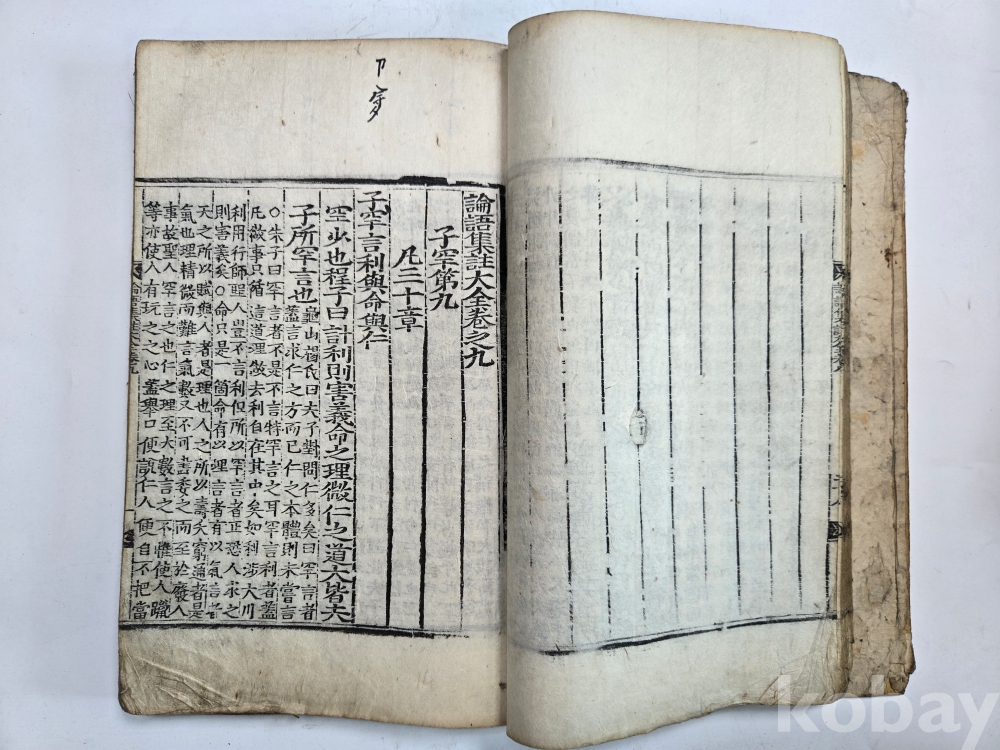 論語集註大全卷之九
子罕第九
凡三十章
子罕言利與命與仁
罕少也程子曰計利則害義命之理微仁之道大皆夫
子所罕言也
龜山楊氏曰夫子對問仁多矣曰罕言者
蓋言求仁之方而已仁之本體則未嘗言
○朱子曰罕言者不是不言特罕言之耳罕言利者蓋
凡做事只循這道理做去利自在其中矣如利涉大川
利用行師聖人豈不言利但所以罕言者正恐人求之
則害義矣○命只是一箇命有以理言者有以氣言者
天之所以賦與人者是理也人之所以壽夭窮通者是
氣也理精微而難言氣數又不可盡委之而至於廢人
事故聖人罕言之也仁之理至大數言之不惟使人躐
等亦使人有玩之之心蓋擧口便說仁人便自不把當
kobay